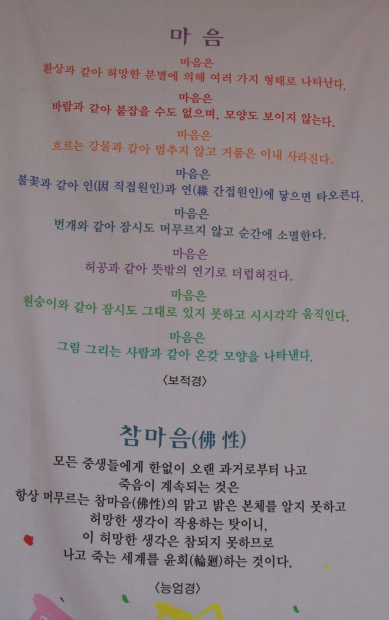 마 음
마음은
환상과 같아 허망한 분별에 의해 여러 가지 형태로 나타난다.
마음은
바람과 같아 붙잡을 수도 없으며, 모양도 보이지 않는다.
마음은
흐르는 강물과 같아 멈추지 않고 거품은 이내 사라진다.
마음은
불꽃과 같아 인(因 직접원인)과 연(緣 간접원인)에 닿으면 타오른다.
마음은
번개와 같아 잠시도 머무르지 않고 순간에 소멸한다.
마음은
허공과 같아 뜻밖의 연기로 더럽혀진다.
마음은
원숭이와 같아 잠시도 그대로 있지 못하고 시시각각 움직인다.
마음은
그림 그리는 사람과 같아 온갖 모양을 나타낸다.
〈보적경〉
참마음(佛 性)
모든 중생들에게 한없이 오랜 과거로부터 나고
죽음이 계속되는 것은
항상 머무르는 참마음(佛性)의 맑고 밝은 본체를 알지 못하고
허망한 생각이 작용하는 탓이니,
이 허망한 생각은 참되지 못하므로
나고 죽는 세계를 윤회(輪廻)하는 것이다.
〈능엄경〉